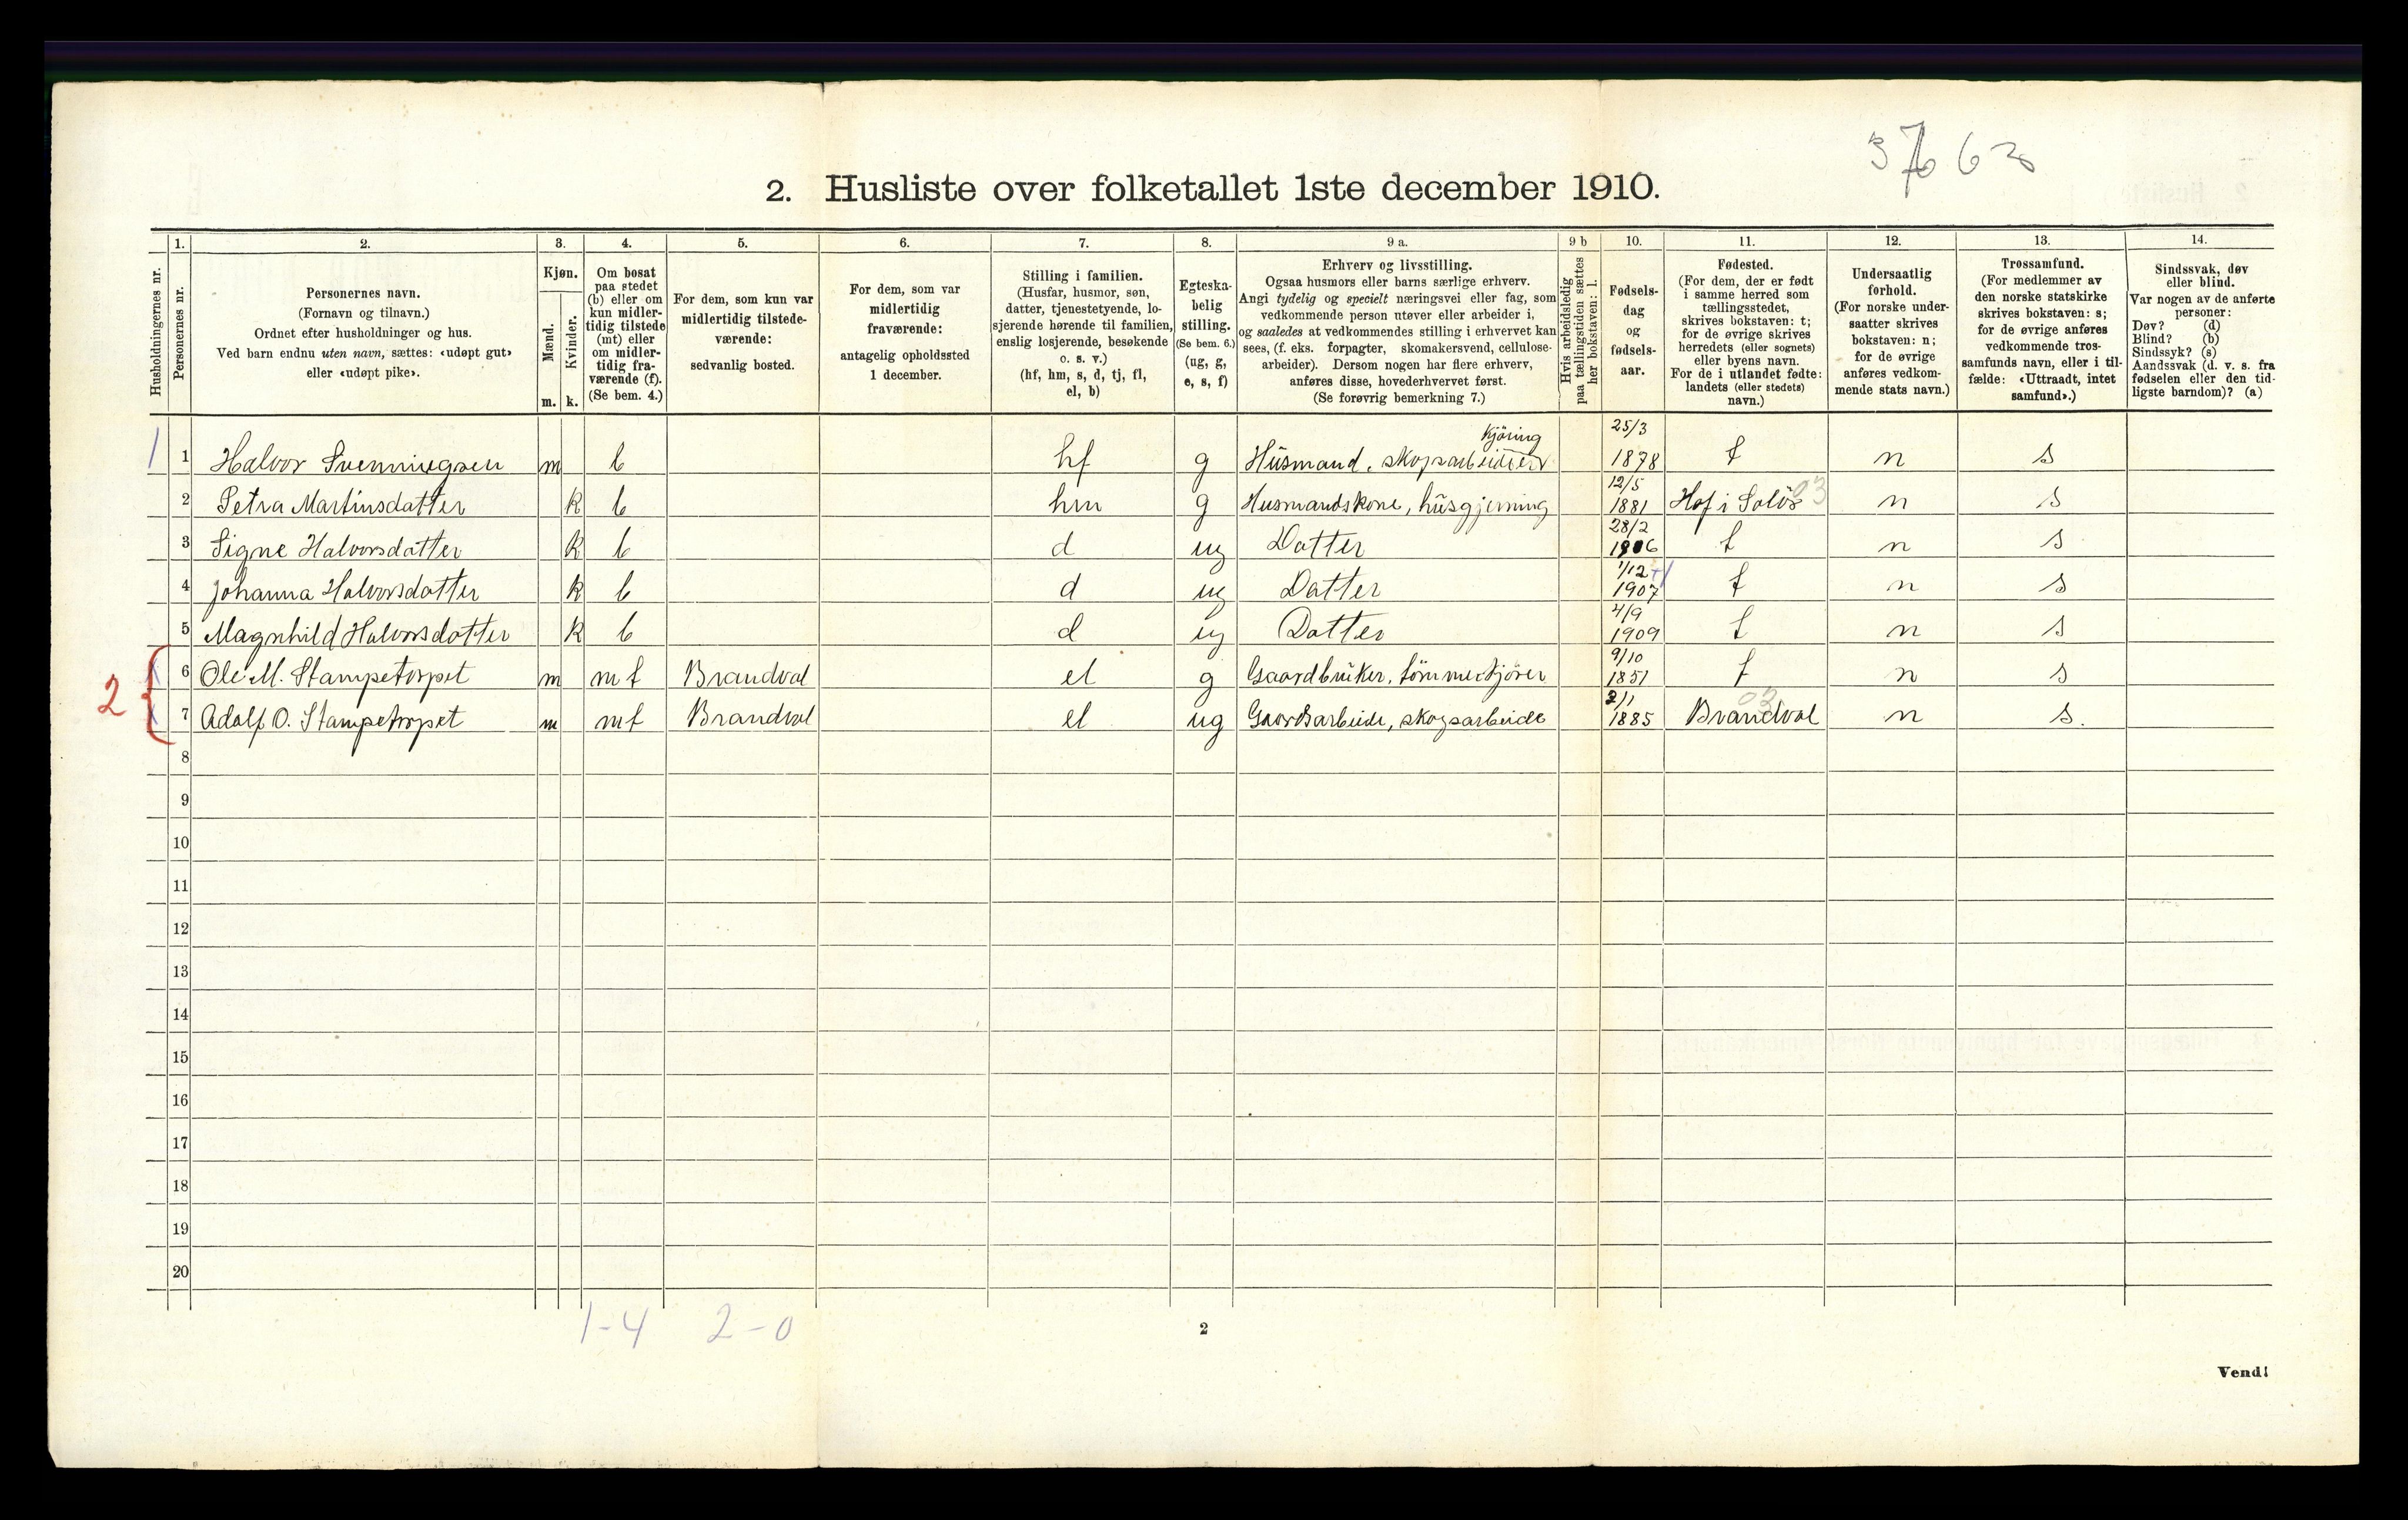 37663
2. Husliste over folketallet 1ste december 1910.
1. 2. 3. 4. 5. 6. 7. 8. 9 a. 9 b 10. 11. 12. 13. 14.
Husholdningernes nr.
Personernes nr.
Personernes navn.
(Fornavn og tilnavn.)
Ordnet efter husholdninger og hus.
Ved barn endnu uten navn, sættes: «udøpt gut»
eller «udøpt pike».
Kjøn.
Mænd.
Kvinder.
m. k.
Om bosat
paa stedet
(b) eller om
kun midler-
tidig tilstede
(mt) eller
om midler-
tidig fra-
værende (f).
(Se bem. 4.)
For dem, som kun var
midlertidig tilstede-
værende:
sedvanlig bosted.
For dem, som var
midlertidig
fraværende:
antagelig opholdssted
1 december.
Stilling i familien.
(Husfar, husmor, søn,
datter, tjenestetyende, lo-
sjerende hørende til familien,
enslig losjerende, besøkende
o. s. v.)
(hf, hm, s, d, tj, fl,
el, b)
Egteska-
belig
stilling.
(Se bem. 6.)
(ug, g,
e, s, f)
Erhverv og livsstilling.
Ogsaa husmors eller barns særlige erhverv.
Angi tydelig og specielt næringsvei eller fag, som
vedkommende person utøver eller arbeider i,
og saaledes at vedkommendes stilling i erhvervet kan
sees, (f. eks. forpagter, skomakersvend, cellulose-
arbeider). Dersom nogen har flere erhverv,
anføres disse, hovederhvervet først.
(Se forøvrig bemerkning 7.)
Hvis arbeidsledig
paa tællingstiden sættes
her bokstaven: l.
Fødsels-
dag
og
fødsels-
aar.
Fødested.
(For dem, der er født
i samme herred som
tællingsstedet,
skrives bokstaven: t;
for de øvrige skrives
herredets (eller sognets)
eller byens navn.
For de i utlandet fødte:
landets (eller stedets)
navn.)
Undersaatlig
forhold.
(For norske under-
saatter skrives
bokstaven: n;
for de øvrige
anføres vedkom-
mende stats navn.)
Trossamfund.
(For medlemmer av
den norske statskirke
skrives bokstaven: s;
for de øvrige anføres
vedkommende tros-
samfunds navn, eller i til-
fælde: «Uttraadt, intet
samfund».)
Sindssvak, døv
eller blind.
Var nogen av de anførte
personer:
Døv? (d)
Blind? (b)
Sindssyk? (s)
Aandssvak (d. v. s. fra
fødselen eller den tid-
ligste barndom)? (a)
kjøring 25/3
1 1 Halvor Svenningsen m b hf g Husmand, skogsarbeider 1878 t n s
2 Petra Martinsdatter k b hm g Husmandskone, husgjerning 12/5 1881 Hof i Solör 03 n s
3 Signe Halvorsdatter k b d ug Datter 28/2 1906 t n s
4 Johanna Halvorsdatter k b d ug Datter 1/12 1907 t n s
5 Magnhild Halvorsdatter k b d ug Datter 4/9 1909 t n s
2 6 Ole M. Stampetorpet m mt Brandval el g Gaardbruker, tömmerkjörer 9/10 1851 t n s
7 Adolf O. Stampetorpet m mt Brandval el ug Gaardsarbeide, skogsarbeide 2/1 1885 Brandval 03 n s.
8
9
10
11
12
13
14
15
16
17
18
19
20
1-4 2-0
2
Vend!